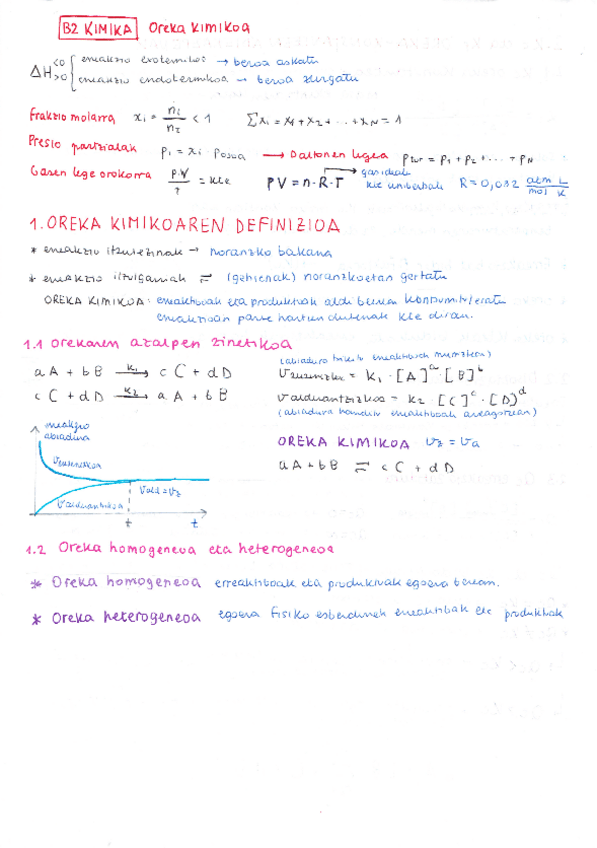 B2 KIMIKA Oreka kimikoa
ΔH <0 erreakzio exotermikoa → beroa askatu
>0 erreakzio endotermikoa → beroa xurgatu
Frakzio molarra xi = ni / nT < 1 Σxi = x1 + x2 + ... + xN = 1
Presio partzialak Pi = xi · Posoa → Daltonen legea Ptot = P1 + P2 + ... + PN
Gasen lege orokorra P·V / T = kte PV = n·R·T gas idealak kte unibertsala R = 0,082 atm L / mol K
1. OREKA KIMIKOAREN DEFINIZIOA
* erreakzio itzulezinak → noranzko bakarra
* erreakzio itzulgarriak ⇌ (gehienak) noranzkoetan gertatu
OREKA KIMIKOA: erreaktiboak eta produktuak aldi berean kontsumitu/eratu
erreakzioan parte hartzen dutenak kte diran.
1.1 Orekaren azalpen zinetikoa
(abiadura txikitu erreaktiboak murriztean)
aA + bB —K1→ cC + dD Vzuzenezkoa = K1 · [A]^a · [B]^b
cC + dD —K2→ aA + bB Valderantzizkoa = K2 · [C]^c · [D]^d
(abiadura handitu erreaktiboak areagotzean)
erreakzio
abiadura
Vzuzenezkoa
Vald = Vz
Valderantzizkoa
t t
OREKA KIMIKOA Vz = Va
aA + bB ⇌ cC + dD
1.2 Oreka homogeneoa eta heterogeneoa
* Oreka homogeneoa erreaktiboak eta produktuak egoera berean.
* Oreka heterogeneoa egoera fisiko ezberdinek erreaktibak eta produktuak